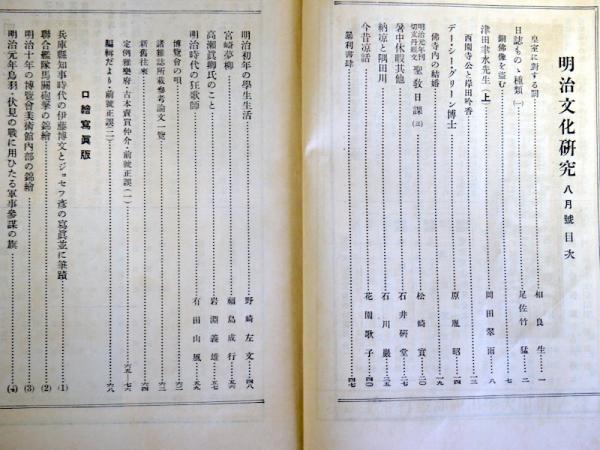 明治文化研究 八月號目次
皇室に對する罰 相良生 一
日誌もの丶種類(一) 尾佐竹猛 二
銅佛像を盜む 七
津田聿水先生(上) 岡田翠雨 八
西園寺公と岸田吟香 一三
デー・シー・グリーン博士 原胤昭 一四
佛寺内の結婚 一九
明治元年刊切支丹經文 聖教日課(三) 松崎實 二〇
暑中休暇其他 石井研堂 二七
納凉と隅田川 石川巖 三五
今昔凉話 花園歌子 四〇
暴利書肆 四七
明治初年の學生生活 野崎左文 四八
宮崎夢柳 福島成行 五六
高瀨眞卿氏のこと 岩淵義雄 五七
明治時代の狂歌師 有田山風 五九
博覽會の唄 六二
諸雜誌所載參考論文一覽 六三
新舊往來 六四
定例雅樂府・古本賣買仲介・前號正誤(一) 六五—七六
編輯だより・前號正誤(二) 六八
口繪寫眞版
兵庫縣知事時代の伊藤博文とジョセフ彥の寫眞並に筆蹟 (1)
聯合艦隊馬關砲擊の錦繪 (2)
明治十年の博覽會美術館内部の錦繪 (3)
明治元年鳥羽・伏見の戰に用ひたる軍事參謀の旗 (4)